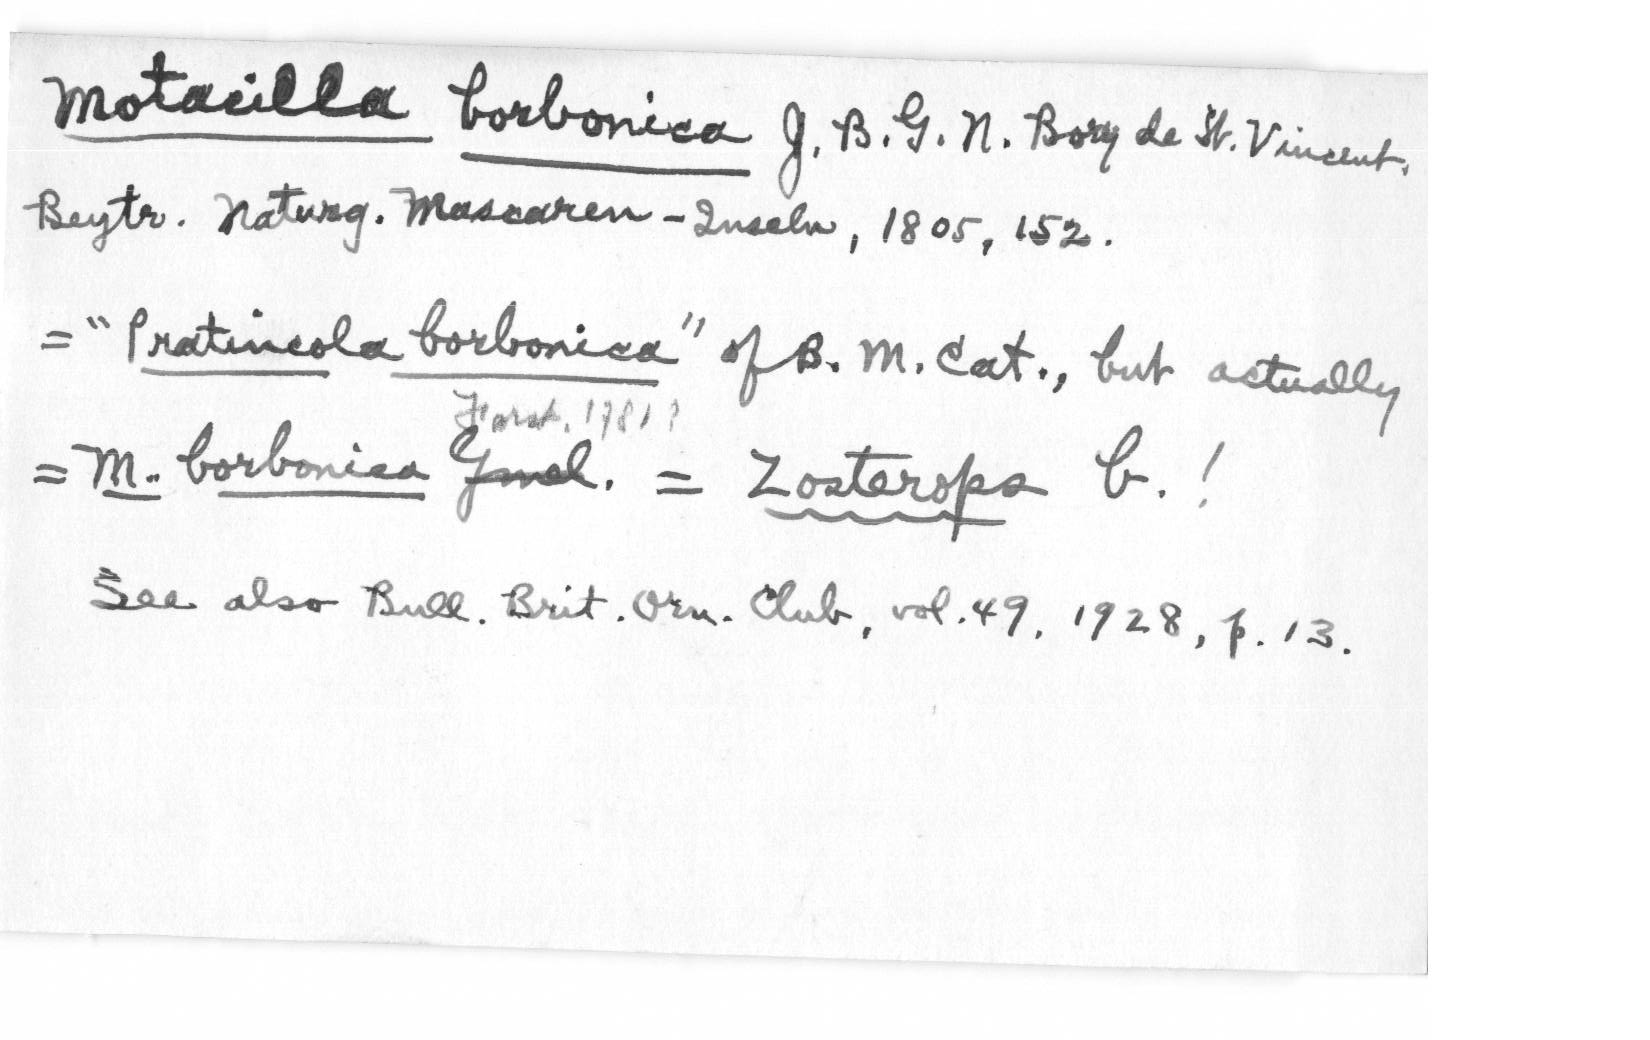 Motacilla borbonica J. B. G. N. Bory de St. Vincent,
Beytr. Naturg. Mascaren-Inseln, 1805, 152.
= "Pratincola borbonica" of B. M. Cat., but actually
Forst. 1781?
= M. borbonica Gmel. = Zosterops b.!
See also Bull. Brit. Orn. Club, vol. 49, 1928, p. 13.